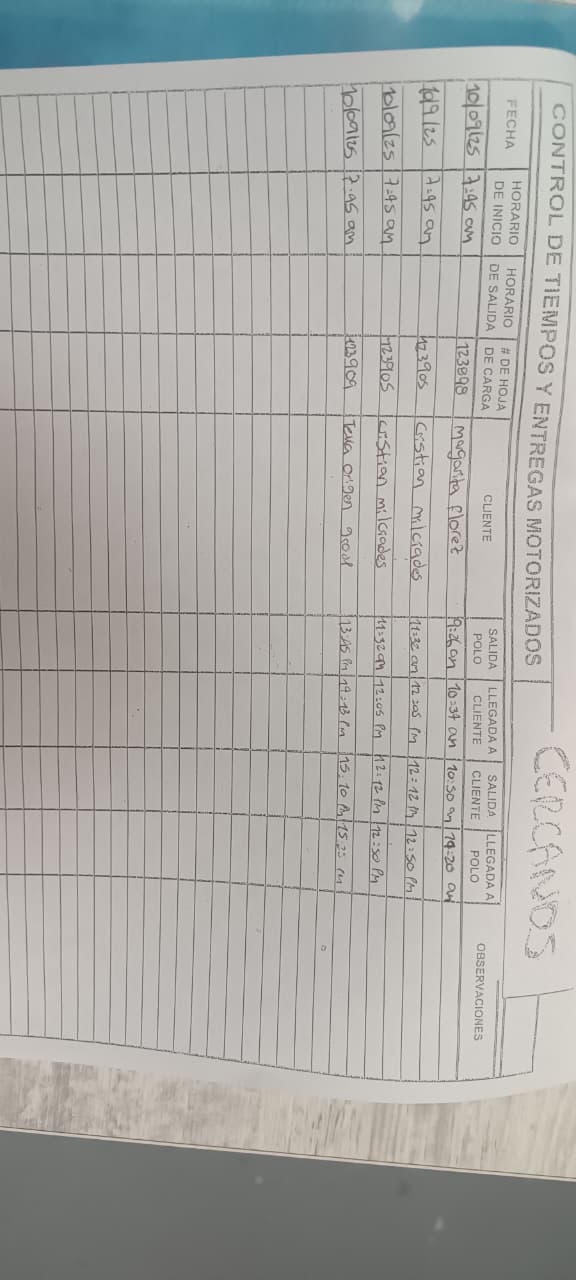 CONTROL DE TIEMPOS Y ENTREGAS MOTORIZADOS
CERCANOS
FECHA HORARIO DE INICIO HORARIO DE SALIDA # DE HOJA DE CARGA CLIENTE SALIDA POLO LLEGADA A CLIENTE SALIDA CLIENTE LLEGADA A POLO OBSERVACIONES
10/09/25 7:45 am 123898 margarita florez 9:26 am 10:37 am 10:50 am
10/9/25 7:45 am 123905 Cristian milciades 11:32 am 12:05 pm 12:12 pm 12:50 pm
10/09/25 7:45 am 123905 Cristian milciades 11:32 am 12:05 pm 12:12 pm 12:50 pm
10/09/25 7:45 am 123909 origen 13:45 pm pm 15:10 pm pm